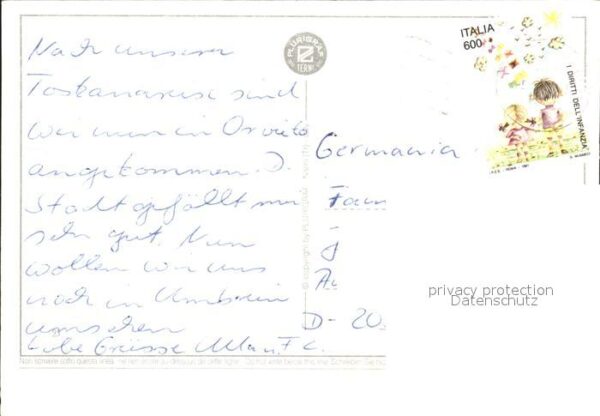 Nach unserer
Toskanareise sind
wir nun in Orvieto
angekommen. D.
Stadt gefällt mir
sehr gut. Nun
wollen wir uns
noch in Umbrien
umsehen
Liebe Grüsse
PLURIGRAF
TERNI
© copyright by PLURIGRAF
Germania
Fam
D-20
ITALIA
600
I DIRITTI DELL'INFANZIA
privacy protection
Datenschutz
Non scrivere sotto questa linea